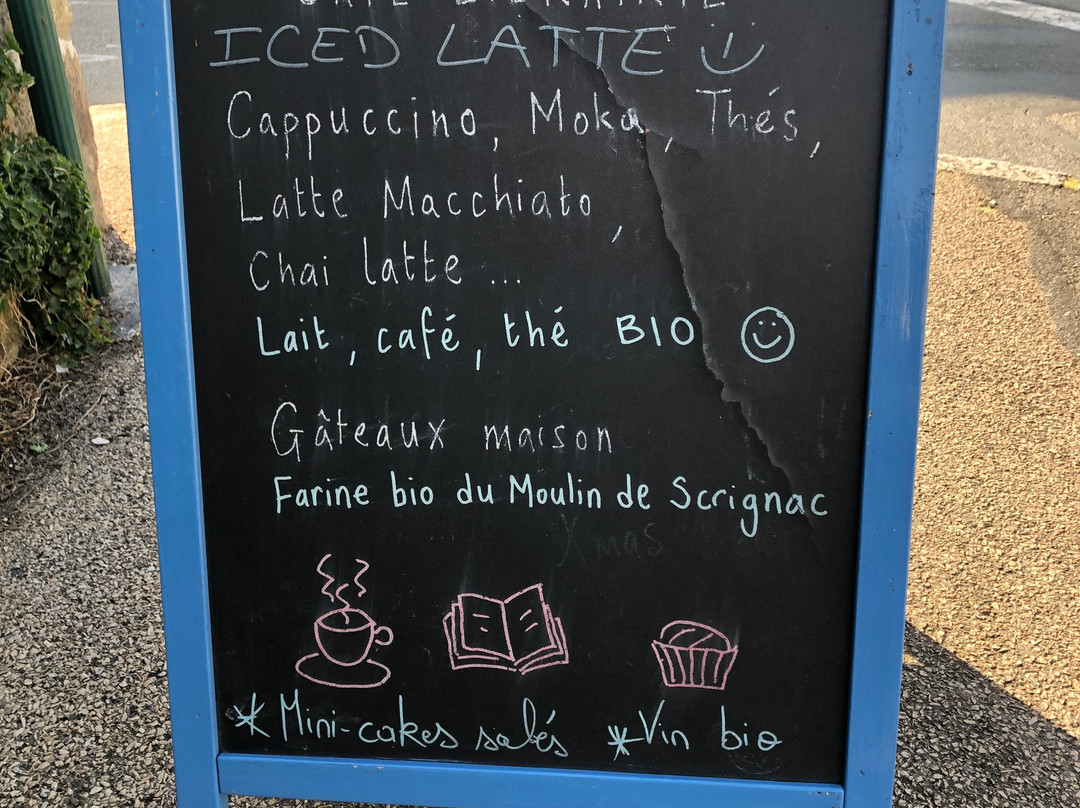 ICED LATTE
Cappuccino, Moka, Thés,
Latte Macchiato,
Chai latte ...
Lait, café, thé BIO
Gâteaux maison
Farine bio du Moulin de Scrignac
Xmas
* Mini-cakes salés * Vin bio